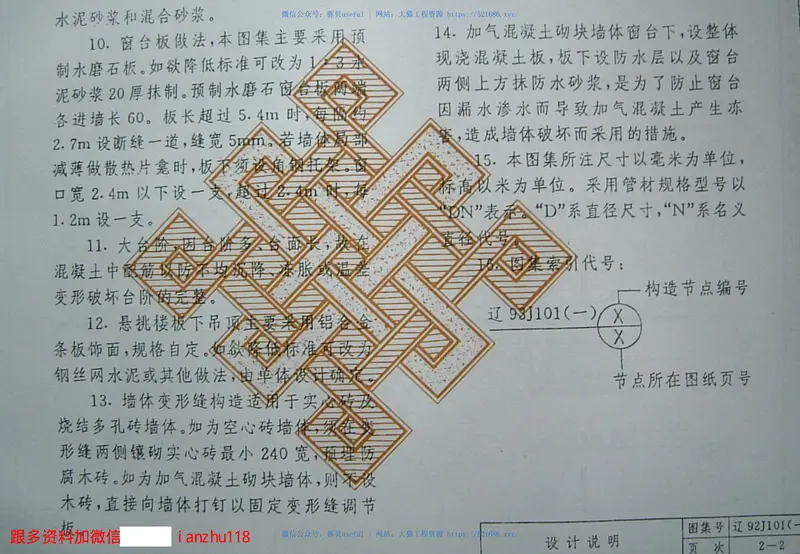 微信公众号：藜贝useful | 网站：大猫工程资源 https://521686.xyz/
水泥砂浆和混合砂浆。
10. 窗台板做法，本图集主要采用预
制水磨石板。如欲降低标准可改为1：3水
泥砂浆20厚抹制。预制水磨石窗台板两端
各进墙长60。板长超过5.4m时，每间约
2.7m设断缝一道，缝宽5mm。若墙体局部
减薄做散热片龛时，板下须设角钢托架。窗
口宽2.4m以下设一支，超过2.4m时，每
1.2m设一支。
11. 大台阶，因台阶多、台面长，故在
混凝土中配筋以防不均沉降、冻胀或温差
变形破坏台阶的完整。
12. 悬挑楼板下吊顶主要采用铝合金
条板饰面，规格自定。如欲降低标准可改为
钢丝网水泥或其他做法，由单体设计确定。
13. 墙体变形缝构造适用于实心砖及
烧结多孔砖墙体。如为空心砖墙体，须在变
形缝两侧镶砌实心砖最小240宽，预埋防
腐木砖。如为加气混凝土砌块墙体，则不设
木砖，直接向墙体打钉以固定变形缝调节
板。
14. 加气混凝土砌块墙体窗台下，设整体
现浇混凝土板，板下设防水层以及窗台
两侧上方抹防水砂浆，是为了防止窗台
因漏水渗水而导致加气混凝土产生冻
害，造成墙体破坏而采用的措施。
15. 本图集所注尺寸以毫米为单位，
标高以米为单位。采用管材规格型号以
“DN”表示。“D”系直径尺寸，“N”系名义
直径代号。
16. 图集索引代号：
构造节点编号
辽93J101(一)
X
X
节点所在图纸页号
跟多资料加微信
ianzhu118
微信公众号：藜贝useful | 网站：大猫工程资源 https://521686.xyz/
设计说明
图集号 辽92J101(一
页 次 2—2